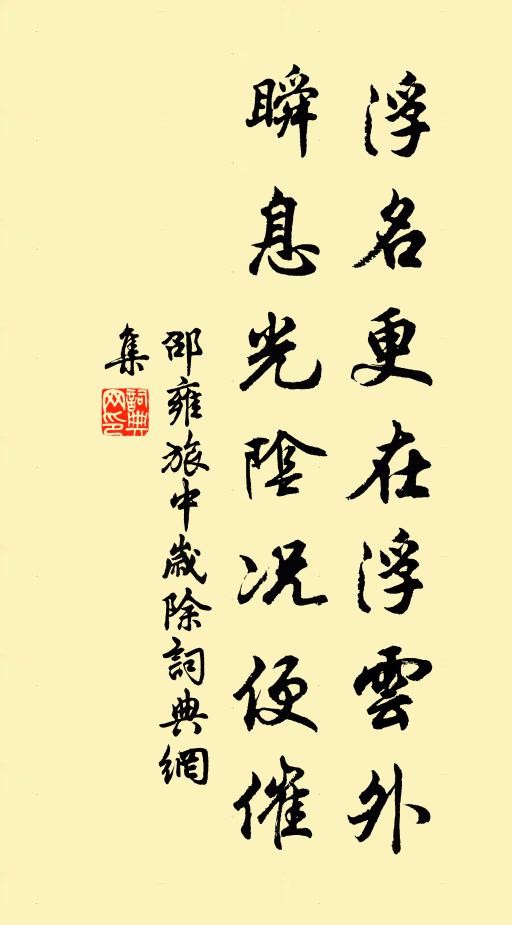 浮名更在浮雲外
瞬息光陰況便催
邵雍旅中歲除詞典網
集
詞典
网印